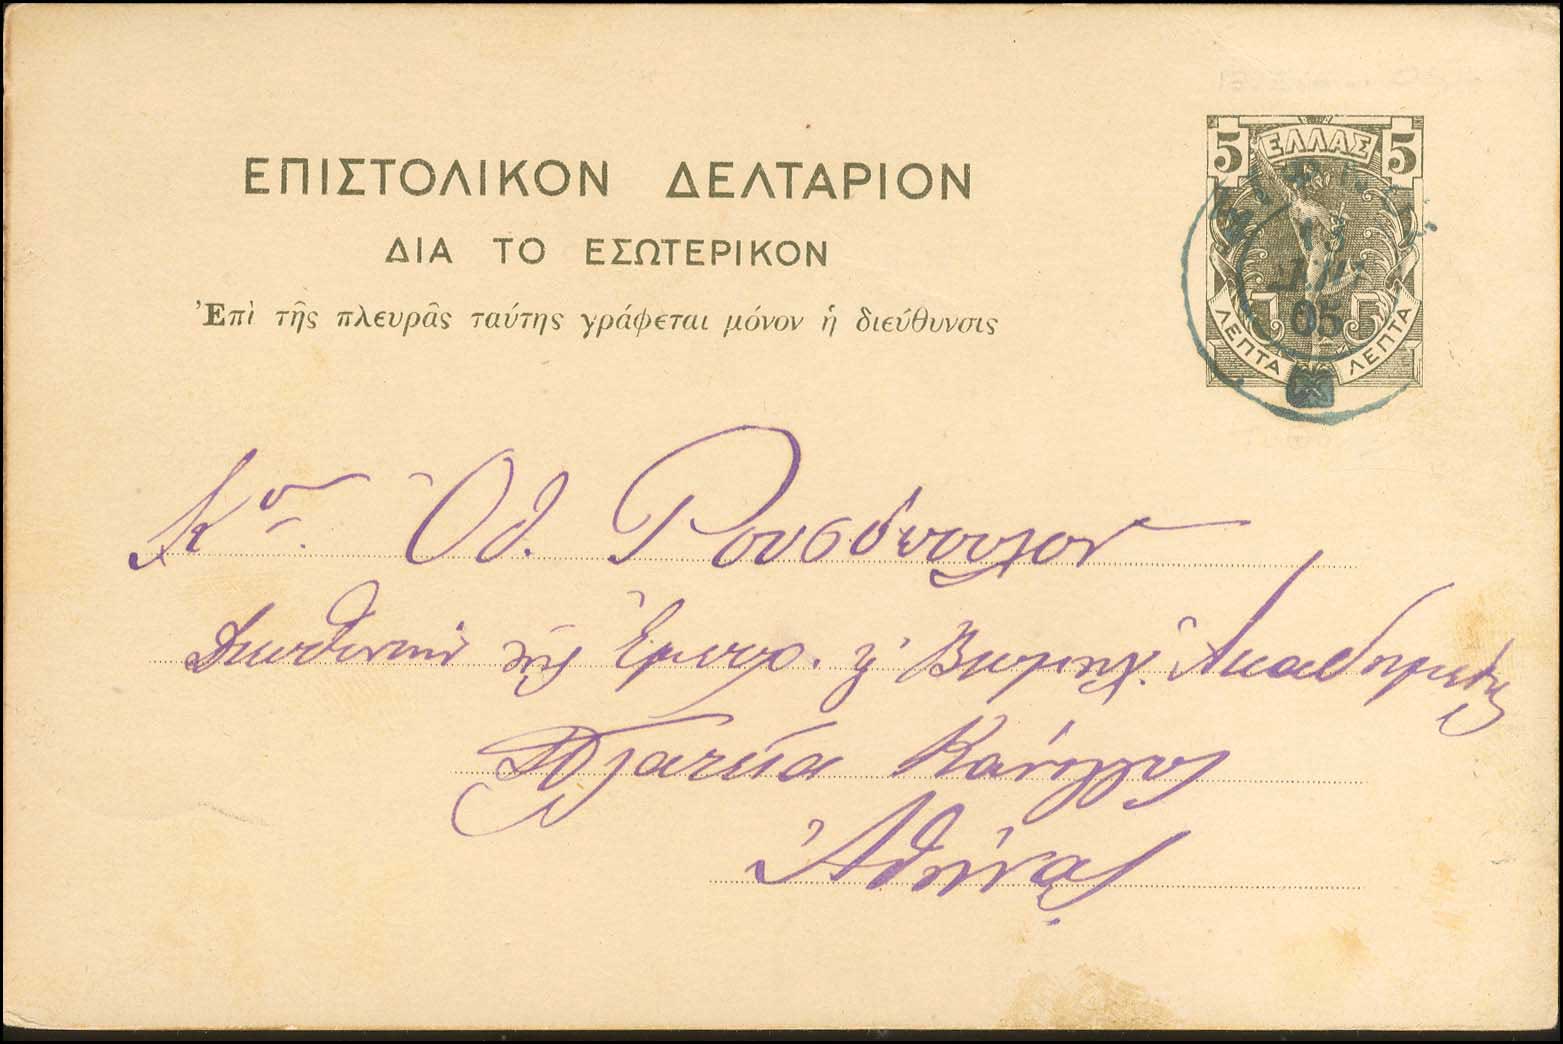 ΕΠΙΣΤΟΛΙΚΟΝ ΔΕΛΤΑΡΙΟΝ
ΔΙΑ ΤΟ ΕΣΩΤΕΡΙΚΟΝ
Ἐπὶ τῆς πλευρᾶς ταύτης γράφεται μόνον ἡ διεύθυνσις
5 ΕΛΛΑΣ 5
13
05
ΛΕΠΤΑ ΛΕΠΤΑ
Κον. Ὀθ. Ρουσόπουλον
Διευθυντὴν τῆς Ἐμπορ. & Βιομηχ. Ἀκαδημείας
Πλατεῖα Κάνιγγος
Ἀθήνας